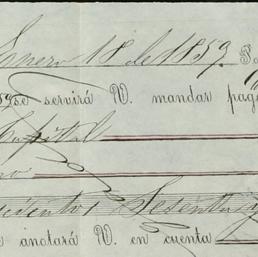 Enero 18 de 1859.
se servirá V. mandar pag
Capital
Sesenta y
anotará V. en cuenta